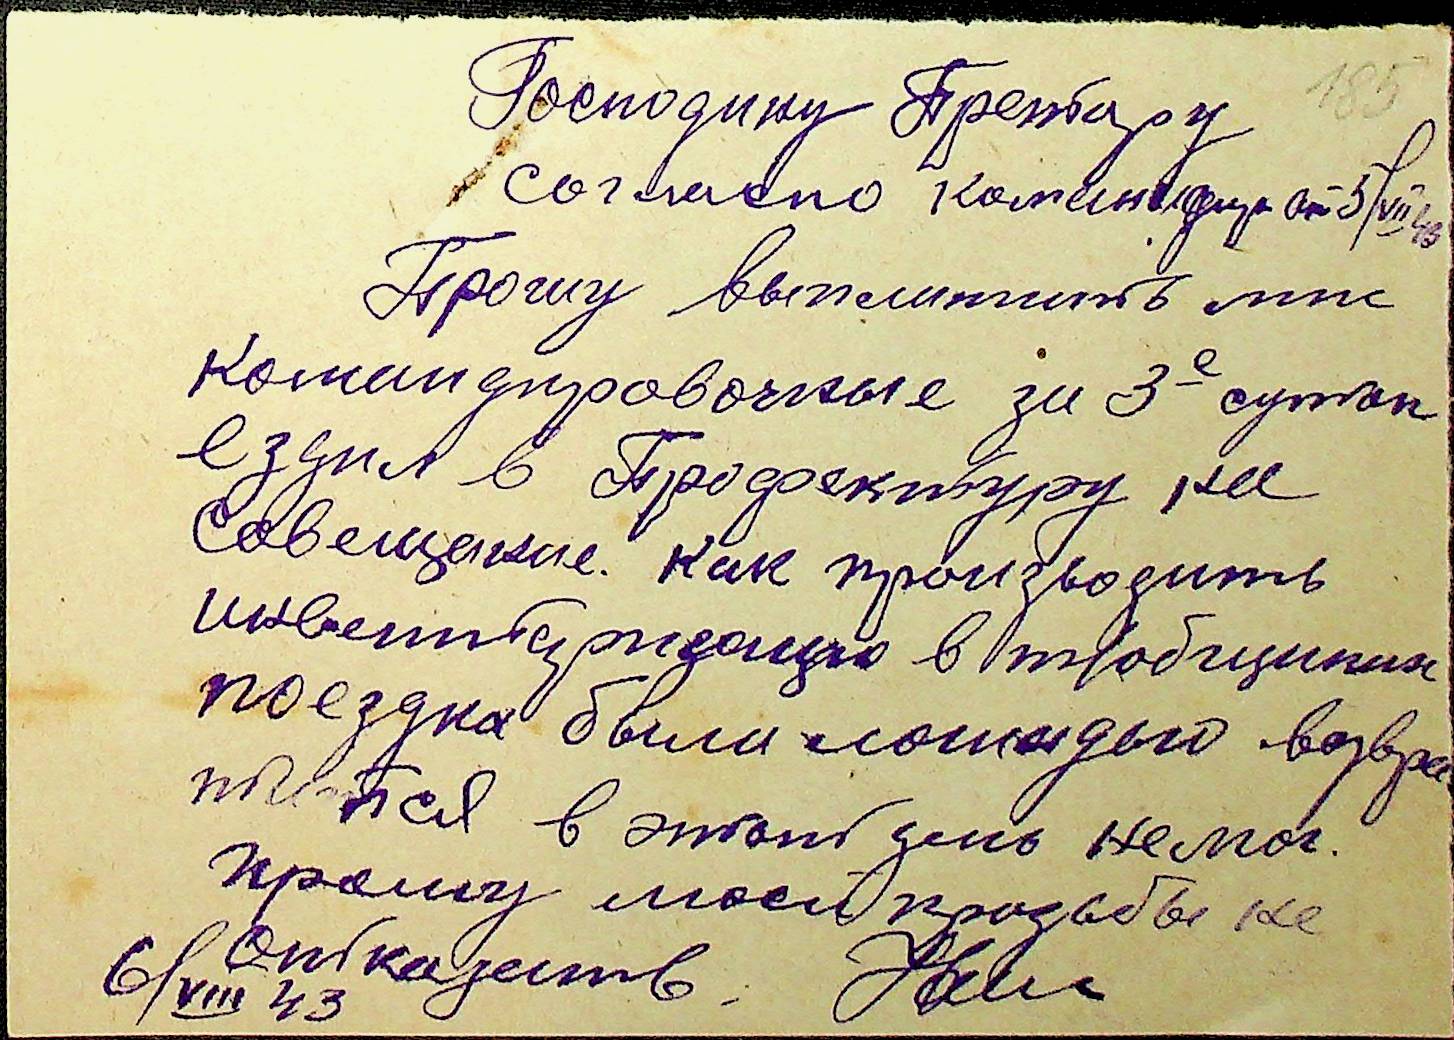 185
Господину Претару
согласно команд. от 5/VIII 43
Прошу выплатить мне
командировочные за 3е суток
ездил в Профектуру на
совещание. как производить
инвентаризацию в
поездка были лошадью возвра
тится в этот день немог.
прошу моей прозьбы не
отказать.
6/VIII 43